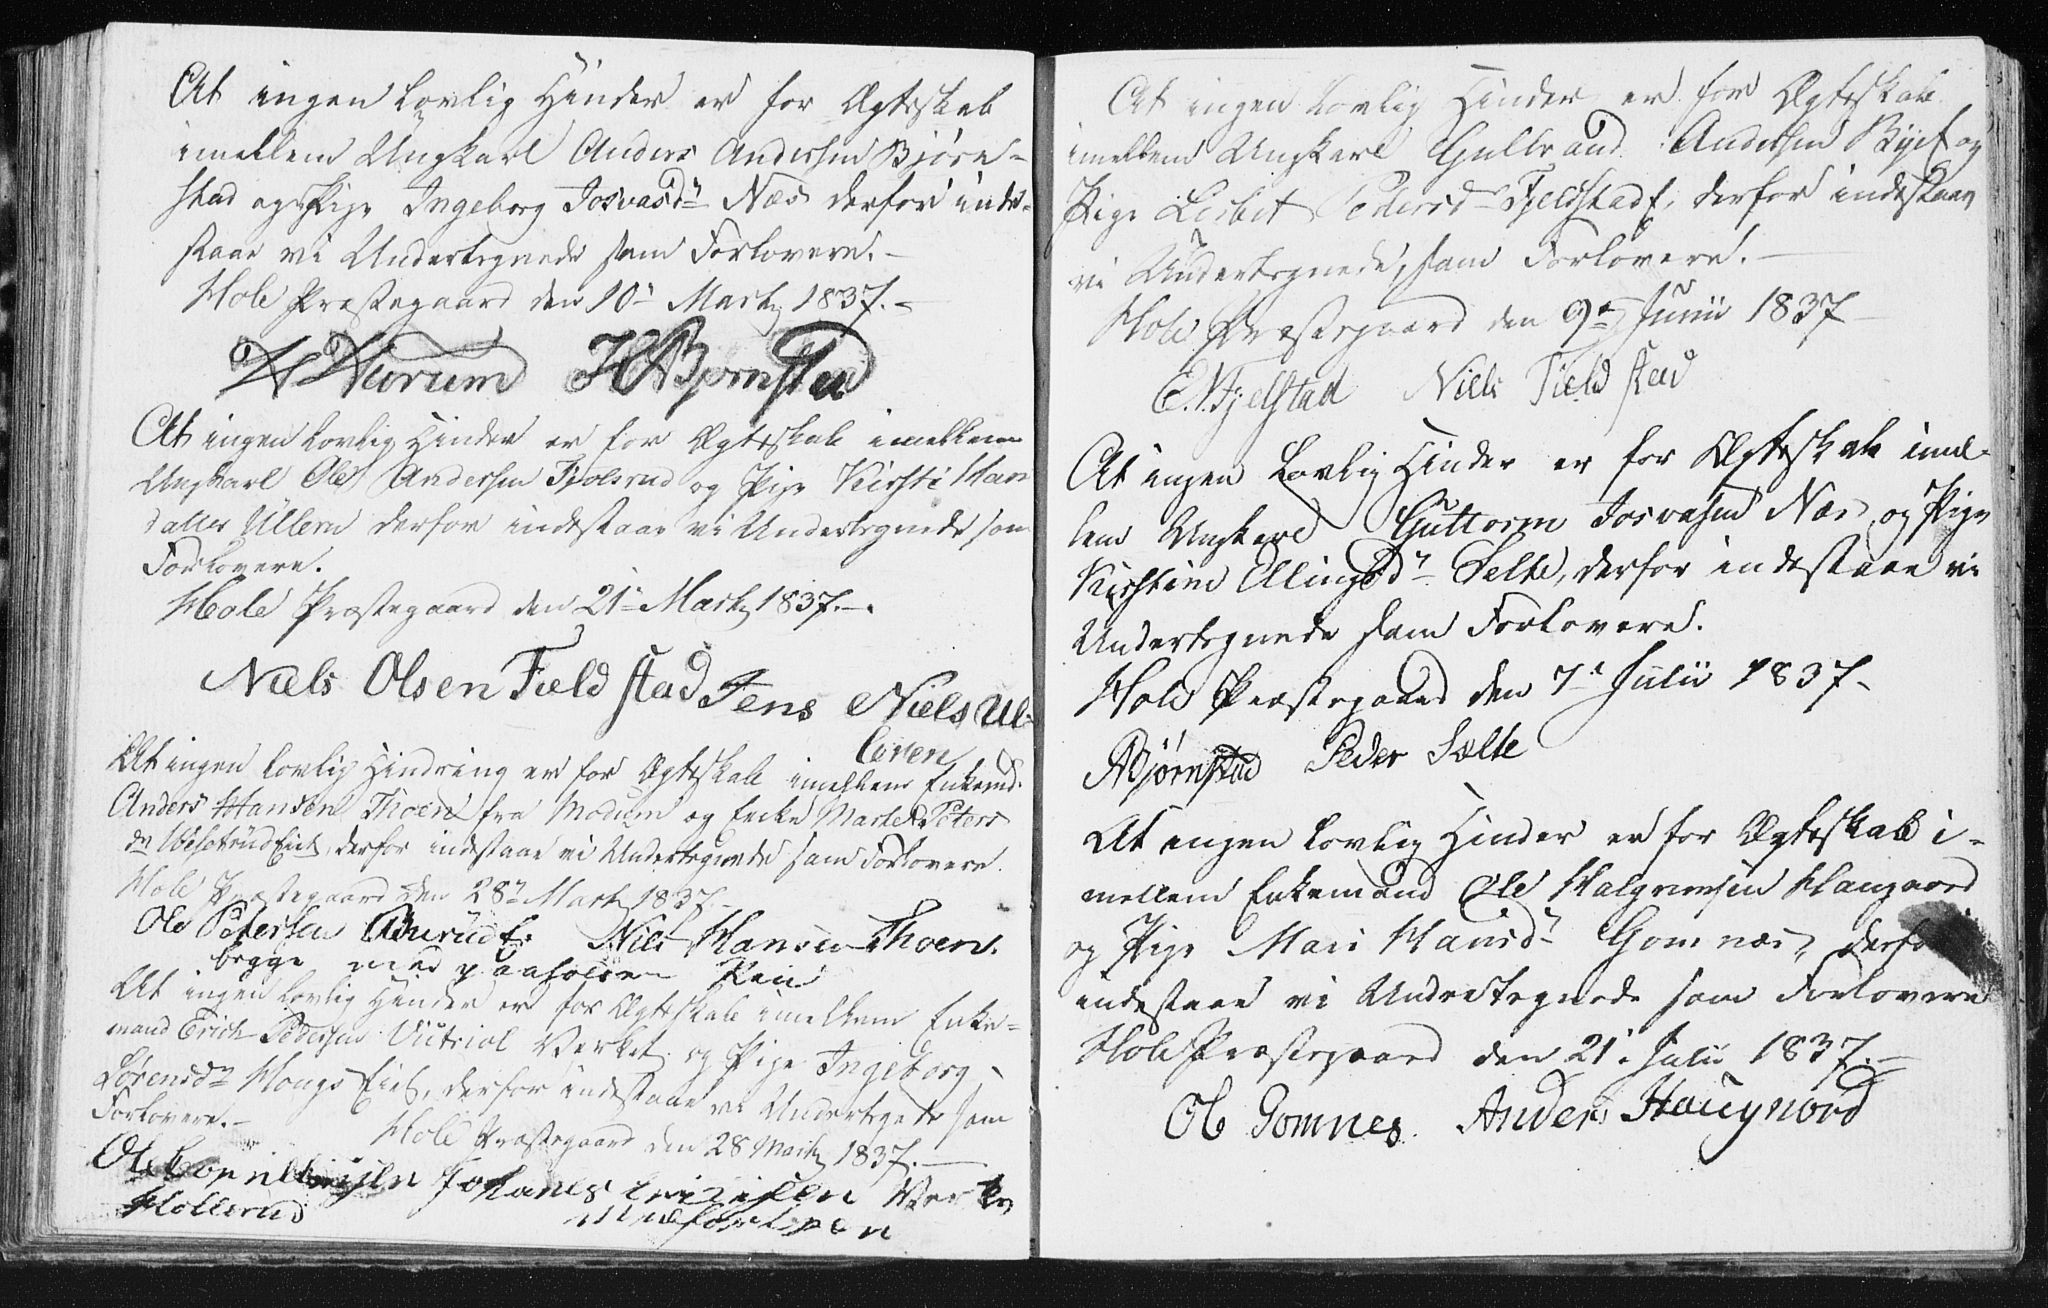 At ingen Lovlig Hinder er for Ægteskab
imellem Ungkarl Anders Andersen Bjørn-
stad og Pige Ingeborg Josvasdr Næs derfor inde-
staae vi Undertegnede som Forlovere.-
Hole Præstegaard den 10de Marts 1837.-
Bjørnstad
At ingen Lovlig Hinder er for Ægteskab imellem
Ungkarl Ole Andersen Fjolsrud og Pige Kirsti Han
datter Ullern derfor indestaae vi Undertegnede som
Forlovere.
Hole Præstegaard den 21de Marts 1837.-.
Niels Olsen Fieldstad Jens Niels Ul-
leren
At ingen lovlig Hindring er for Ægteskab imellem Enkemd.
Anders Hansen Thoen fra Modum og Enke Marte Peters
dr Eiet, derfor indestaae vi Undertegnede som Forlovere.
Hole Præstegaard den 28de Marts 1837.-
Ole Petersen Niels Hansen Thoen.
begge med paaholden Pen
At ingen Lovlig Hinder er for Ægteskab imellem Enke-
mand Erich Pedersen Victriol Verket og Pige Ingeborg
Lørensdr Hougs Eiet, derfor indestaae vi Undertegnede som
Forlovere.- Hole Præstegaard den 28 Marts 1837.-
Ole Johanes
At ingen Lovlig Hinder er for Ægteskab
imellem Ungkarl Gullbrand Andersen Byef og
Pige Lisbet Pedersd Fjeldstadf, derfor indestaae
vi Undertegnede, som Forlovere.-
Hole Præstegaard den 9de Junii 1837-
E. N. Fjelstad Niels Fieldstad
At ingen Lovlig Hinder er for Ægteskab imel-
lem Ungkarl Guttorm Josvasen Næs og Pige
Kirstine Ellingsdr Selte, derfor indestaae vi
Undertegnede som Forlovere.
Hole Præstegaard den 7de Julii 1837-
Bjørnstad Peder Sælte
At ingen Lovlig Hinder er for Ægteskab i-
mellem Enkemand Ole Halgrimsen Haugaard
og Pige Mari Hansdr Gomnæs, derfor
indestaae vi Undertegnede som Forlovere
Hole Præstegaard den 21de Julii 1837.-
Ole Gomnes. Anders